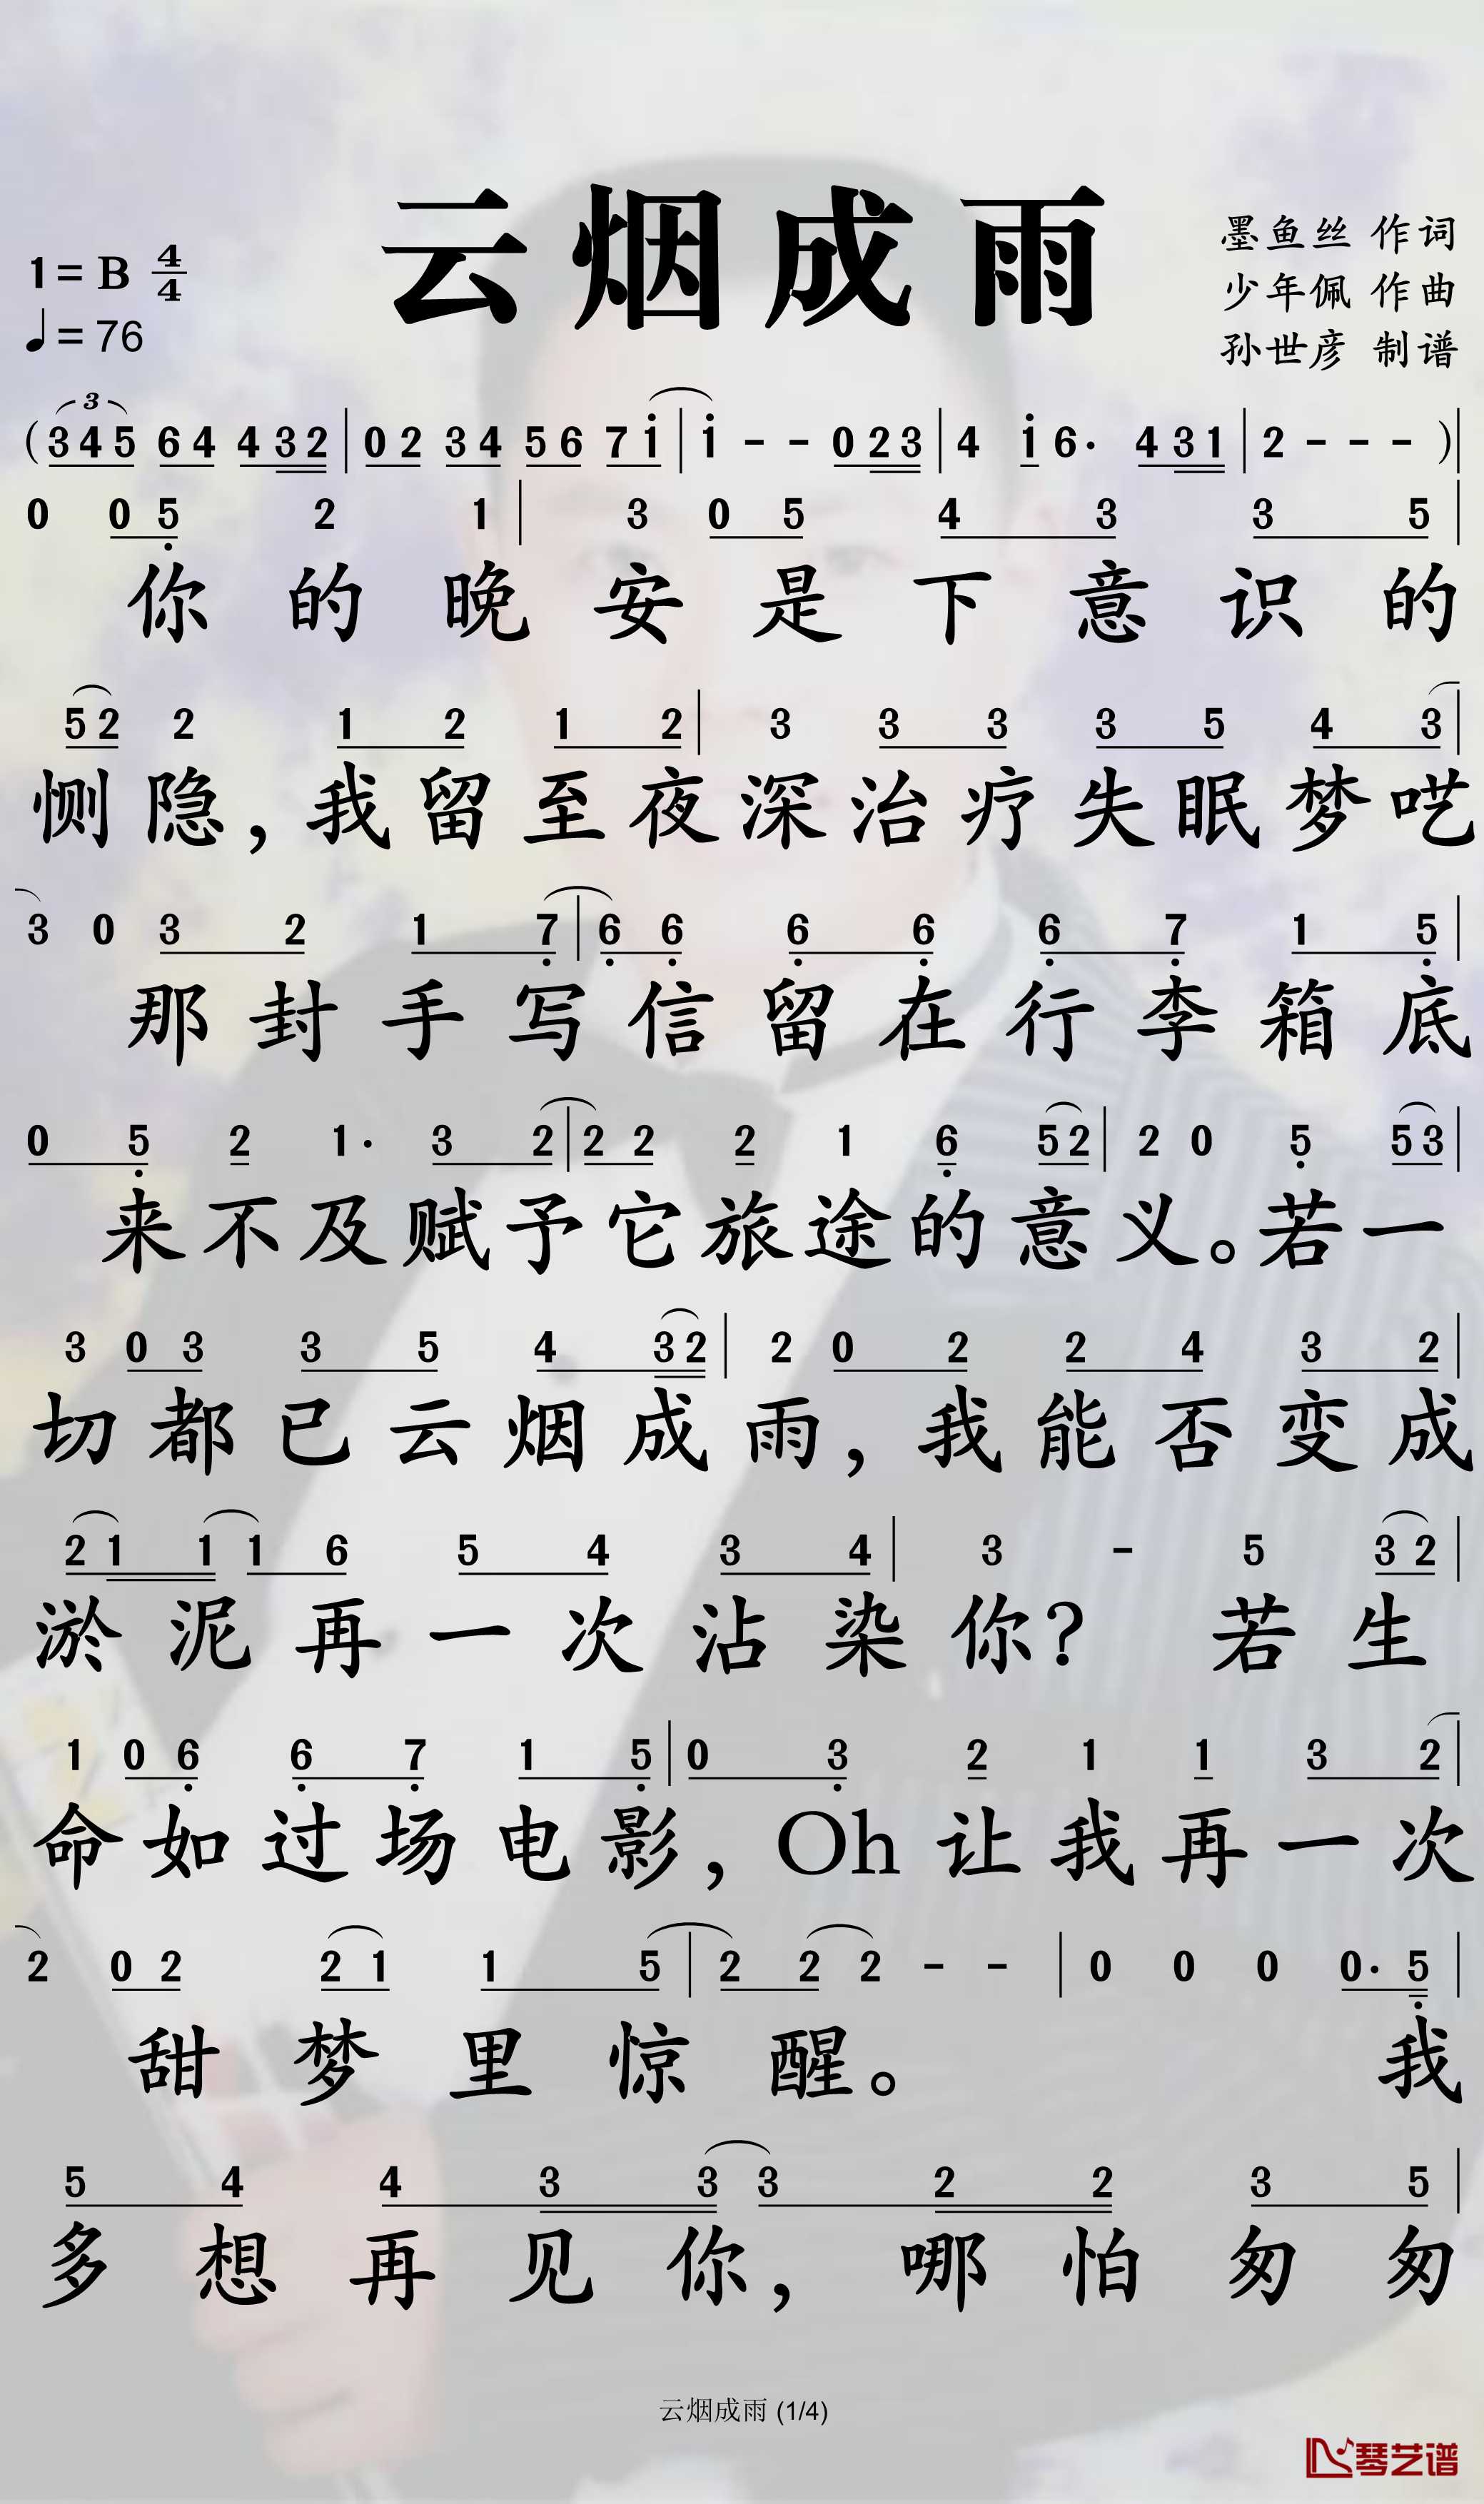 云烟成雨
1=B 4/4
♩=76
墨鱼丝 作词
少年佩 作曲
孙世彦 制谱
3
( 3 4 5 6 4 4 3 2 | 0 2 3 4 5 6 7 1 | 1 - - 0 2 3 | 4 1 6 · 4 3 1 | 2 - - - ) |
0 0 5 2 1 | 3 0 5 4 3 3 5 |
你的晚安是下意识的
5 2 2 1 2 1 2 | 3 3 3 3 5 4 3 |
恻隐，我留至夜深治疗失眠梦呓
3 0 3 2 1 7 | 6 6 6 6 6 7 1 5 |
那封手写信留在行李箱底
0 5 2 1 · 3 2 | 2 2 2 1 6 5 2 | 2 0 5 5 3 |
来不及赋予它旅途的意义。若一
3 0 3 3 5 4 3 2 | 2 0 2 2 4 3 2 |
切都已云烟成雨，我能否变成
2 1 1 1 6 5 4 3 4 | 3 - 5 3 2 |
淤泥再一次沾染你？ 若生
1 0 6 6 7 1 5 | 0 3 2 1 1 3 2 |
命如过场电影，Oh 让我再一次
2 0 2 2 1 1 5 | 2 2 2 - - | 0 0 0 0 · 5 |
甜梦里惊醒。 我
5 4 4 3 3 3 2 2 3 5 |
多想再见你，哪怕匆匆
云烟成雨 (1/4)
琴艺谱